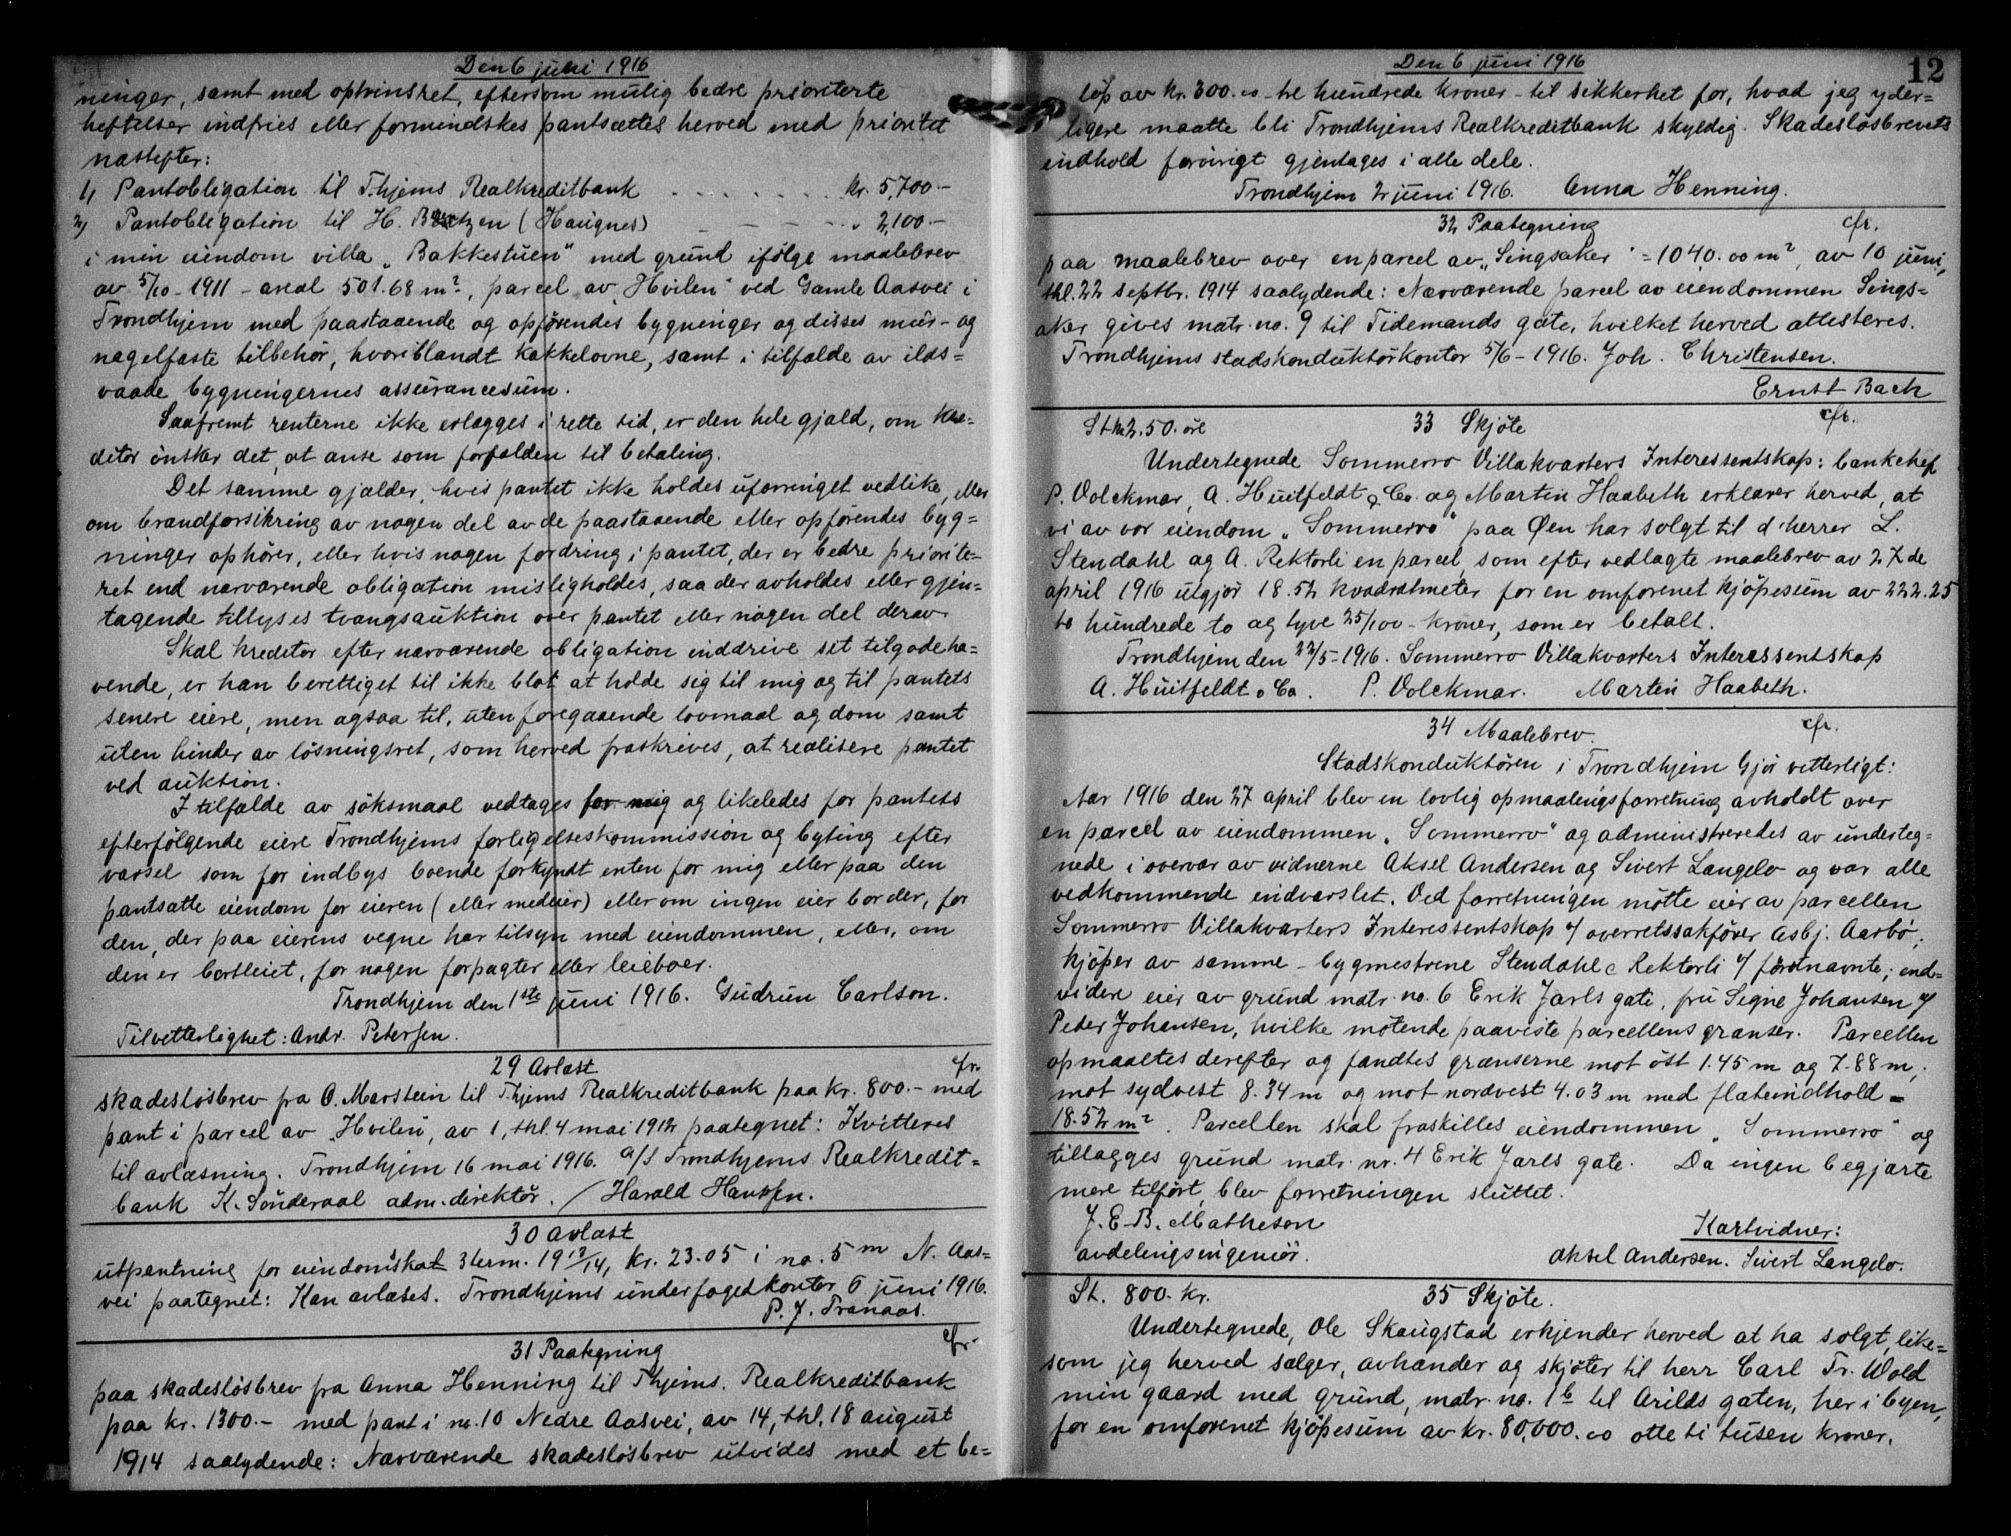 Den 6 juni 1916
ninger, samt med optrinsret, eftersom mulig bedre prioriterte
heftelser indfries eller formindskes pantsættes herved med prioritet
næstefter:
1) Pantobligation til T.hjems Realkreditbank . . . . . . kr. 5,700.-
2) Pantobligation til H. (Haugnes) - - - - " 2,100.-
i min eiendom villa "Bakkestuen" med grund ifølge maalebrev
av 5/10-1911 - areal 501.68 m², parcel av "Hvilen" ved Gamle Aasvei i
Trondhjem med paastaaende og opførendes bygninger og disses mur- og
nagelfaste tilbehør, hvoriblandt kakkelovne, samt i tilfælde av ilds=
vaade bygningernes assurancesum.
Saafremt renterne ikke erlægges i rette tid, er den hele gjæld, om kre=
ditor ønsker det, at anse som forfalden til betaling.
Det samme gjælder, hvis pantet ikke holdes uforringet vedlike, eller
om brandforsikring av nogen del av de paastaaende eller opførendes byg=
ninger ophører, eller hvis nogen fordring i pantet, der er bedre priorite=
ret end nærværende obligation misligholdes, saa der avholdes eller gjen=
tagende tillyses tvangsauktion over pantet eller nogen del derav.
Skal kreditor efter nærværende obligation inddrive sit tilgodeha=
vende, er han berettiget til ikke blot at holde seg til mig og til pantets
senere eiere, men ogsaa til, uten foregaaende lovmaal og dom samt
uten hinder av løsningsret, som herved fraskrives, at realisere pantet
ved auktion.
I tilfælde av søksmaal vedtages for mig og likeledes for pantets
efterfølgende eiere Trondhjems forligelseskommission og byting efter
varsel som for indbys boende forkyndt enten for mig eller paa den
pantsatte eiendom for eieren (eller medeier) eller om ingen eier bor der, for
den, der paa eierens vegne har tilsyn med eiendommen, eller, om
den er bortleiet, for nogen forpagter eller leieboer.
Trondhjem den 1ste juni 1916. Gudrun Carlson.
Til vitterlighet: Andr. Petersen.
29 Avlæst cfr.
skadesløsbrev fra O. Marstein til T.hjems Realkreditbank paa kr. 800.- med
pant i parcel av "Hvilen", av 1, thl. 4 mai 1912 paategnet: Kvitteres
til avlæsning. Trondhjem 16 mai 1916. A/S Trondhjems Realkredit=
bank K. Sönderaal adm. direktør. / Harald Hansen.
30 Avlæst
utpantning for eiendomskat 3 term. 1913/14, kr. 23.05 i no. 5 m N. Aas=
vei paategnet: Kan avlæses. Trondhjems underfogedkontor 6 juni 1916.
P. J. Tranaas.
31 Paategning cfr.
paa skadesløsbrev fra Anna Henning til Thjems. Realkreditbank
paa kr. 1300.- med pant i no. 10 Nedre Aasvei, av 14, thl. 18 august
1914 saalydende: Nærværende skadesløsbrev utvides med et be=
Den 6 juni 1916
12
løp av kr. 300.00 - tre hundrede kroner - til sikkerhet for, hvad jeg yder=
ligere maatte bli Trondhjems Realkreditbank skyldig. Skadesløsbrevets
indhold forøvrigt gjentages i alle dele.
Trondhjem 2 juni 1916. Anna Henning.
32 Paategning cfr.
paa maalebrev over en parcel av "Singsaker" = 1040.00 m², av 10 juni,
thl. 22 septbr. 1914 saalydende: Nærværende parcel av eiendommen Sings=
aker gives matr. no. 9 til Tidemands gate, hvilket herved attesteres.
Trondhjems stadskonduktørkontor 5/6-1916. Joh. Christensen.
Ernst Bach
St. kr. 2.50 øre 33 Skjøte cfr.
Undertegnede Sommerro Villakvarters Interessentskap: bankchef
P. Volckmar, A. Huitfeldt & Co. og Martin Haabeth erklærer herved, at
vi av vor eiendom "Sommerro" paa Øen har solgt til d'herrer L.
Stendahl og A. Rektorli en parcel, som efter vedlagte maalebrev av 27de
april 1916 utgjør 18.52 kvadratmeter for en omforenet kjøpesum av 222.25
to hundrede to og tyve 25/100 - kroner, som er betalt.
Trondhjem den 22/5-1916. Sommerro Villakvarters Interessentskap
A. Huitfeldt & Co. P. Volckmar. Martin Haabeth.
34 Maalebrev. cfr.
Stadskonduktøren i Trondhjem Gjør vitterligt:
Aar 1916 den 27 april blev en lovlig opmaalingsforretning avholdt over
en parcel av eiendommen "Sommerro" og administreredes av underteg=
nede i overvær av vidnerne Aksel Andersen og Sivert Langelo og var alle
vedkommende indvarslet. Ved forretningen møtte eier av parcellen
Sommerro Villakvarters Interessentskap v/ overretssakfører Asbj. Aarbø;
kjøper av samme - bygmestrene Stendahl & Rektorli v/ førstnævnte; end=
videre eier av grund matr. no. 6 Erik Jarls gate, fru Signe Johansen v/
Peder Johansen, hvilke møtende paaviste parcellens grænser. Parcellen
opmaaltes derefter og fandtes grænserne mot øst 1.45 m og 7.88 m,
mot sydvest 8.34 m og mot nordvest 4.03 m med flateindhold =
18.52 m². Parcellen skal fraskilles eiendommen "Sommerro" og
tillægges grund matr. nr. 4 Erik Jarls gate. Da ingen begjærte
mere tilført, blev forretningen sluttet.
J. E. B. Matheson Kartvidner:
avdelingsingeniør. Aksel Andersen. Sivert Langelo.
St. 800. kr. 35 Skjøte.
Undertegnede, Ole Skaugstad erkjender herved at ha solgt, like=
som jeg herved sælger, avhænder og skjøter til herr Carl Fr. Wold
min gaard med grund, matr. no. 1b til Arilds gaten, her i byen,
for en omforenet kjøpesum av kr. 80,000.00 otte ti tusen kroner.